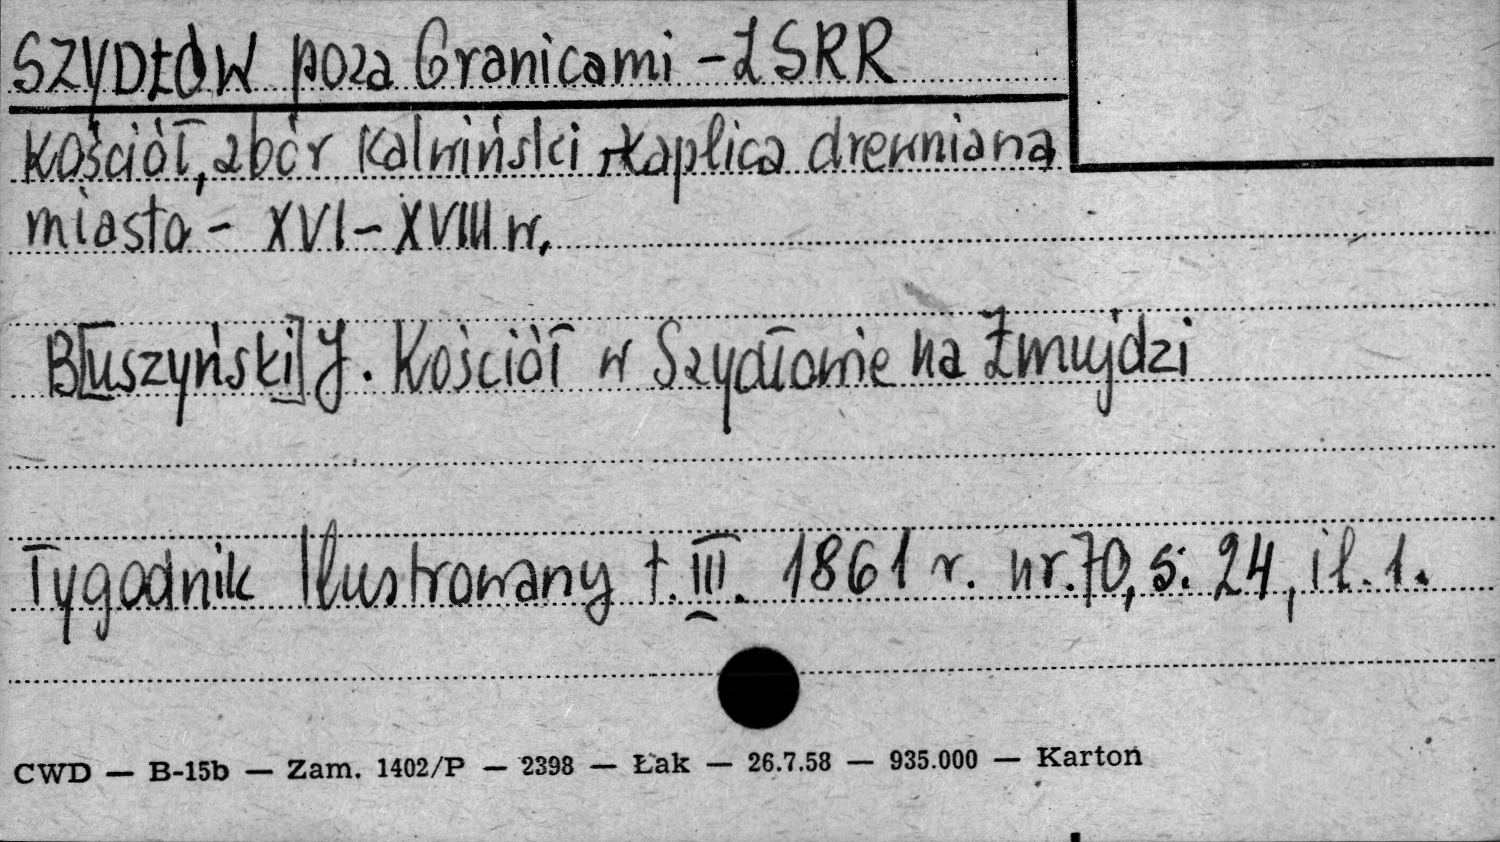 SZYDŁÓW poza Granicami - ZSRR
Kościół, zbór Kalwiński, kaplica drewniana,
miasto - XVI - XVIII w.
B[uszyński] J. Kościół w Szydłowie na Żmujdzi
Tygodnik Ilustrowany t. III. 1861 r. nr. 70, s. 24, il. 1.
CWD — B-15b — Zam. 1402/P — 2398 — Łak — 26.7.58 — 935.000 — Karton